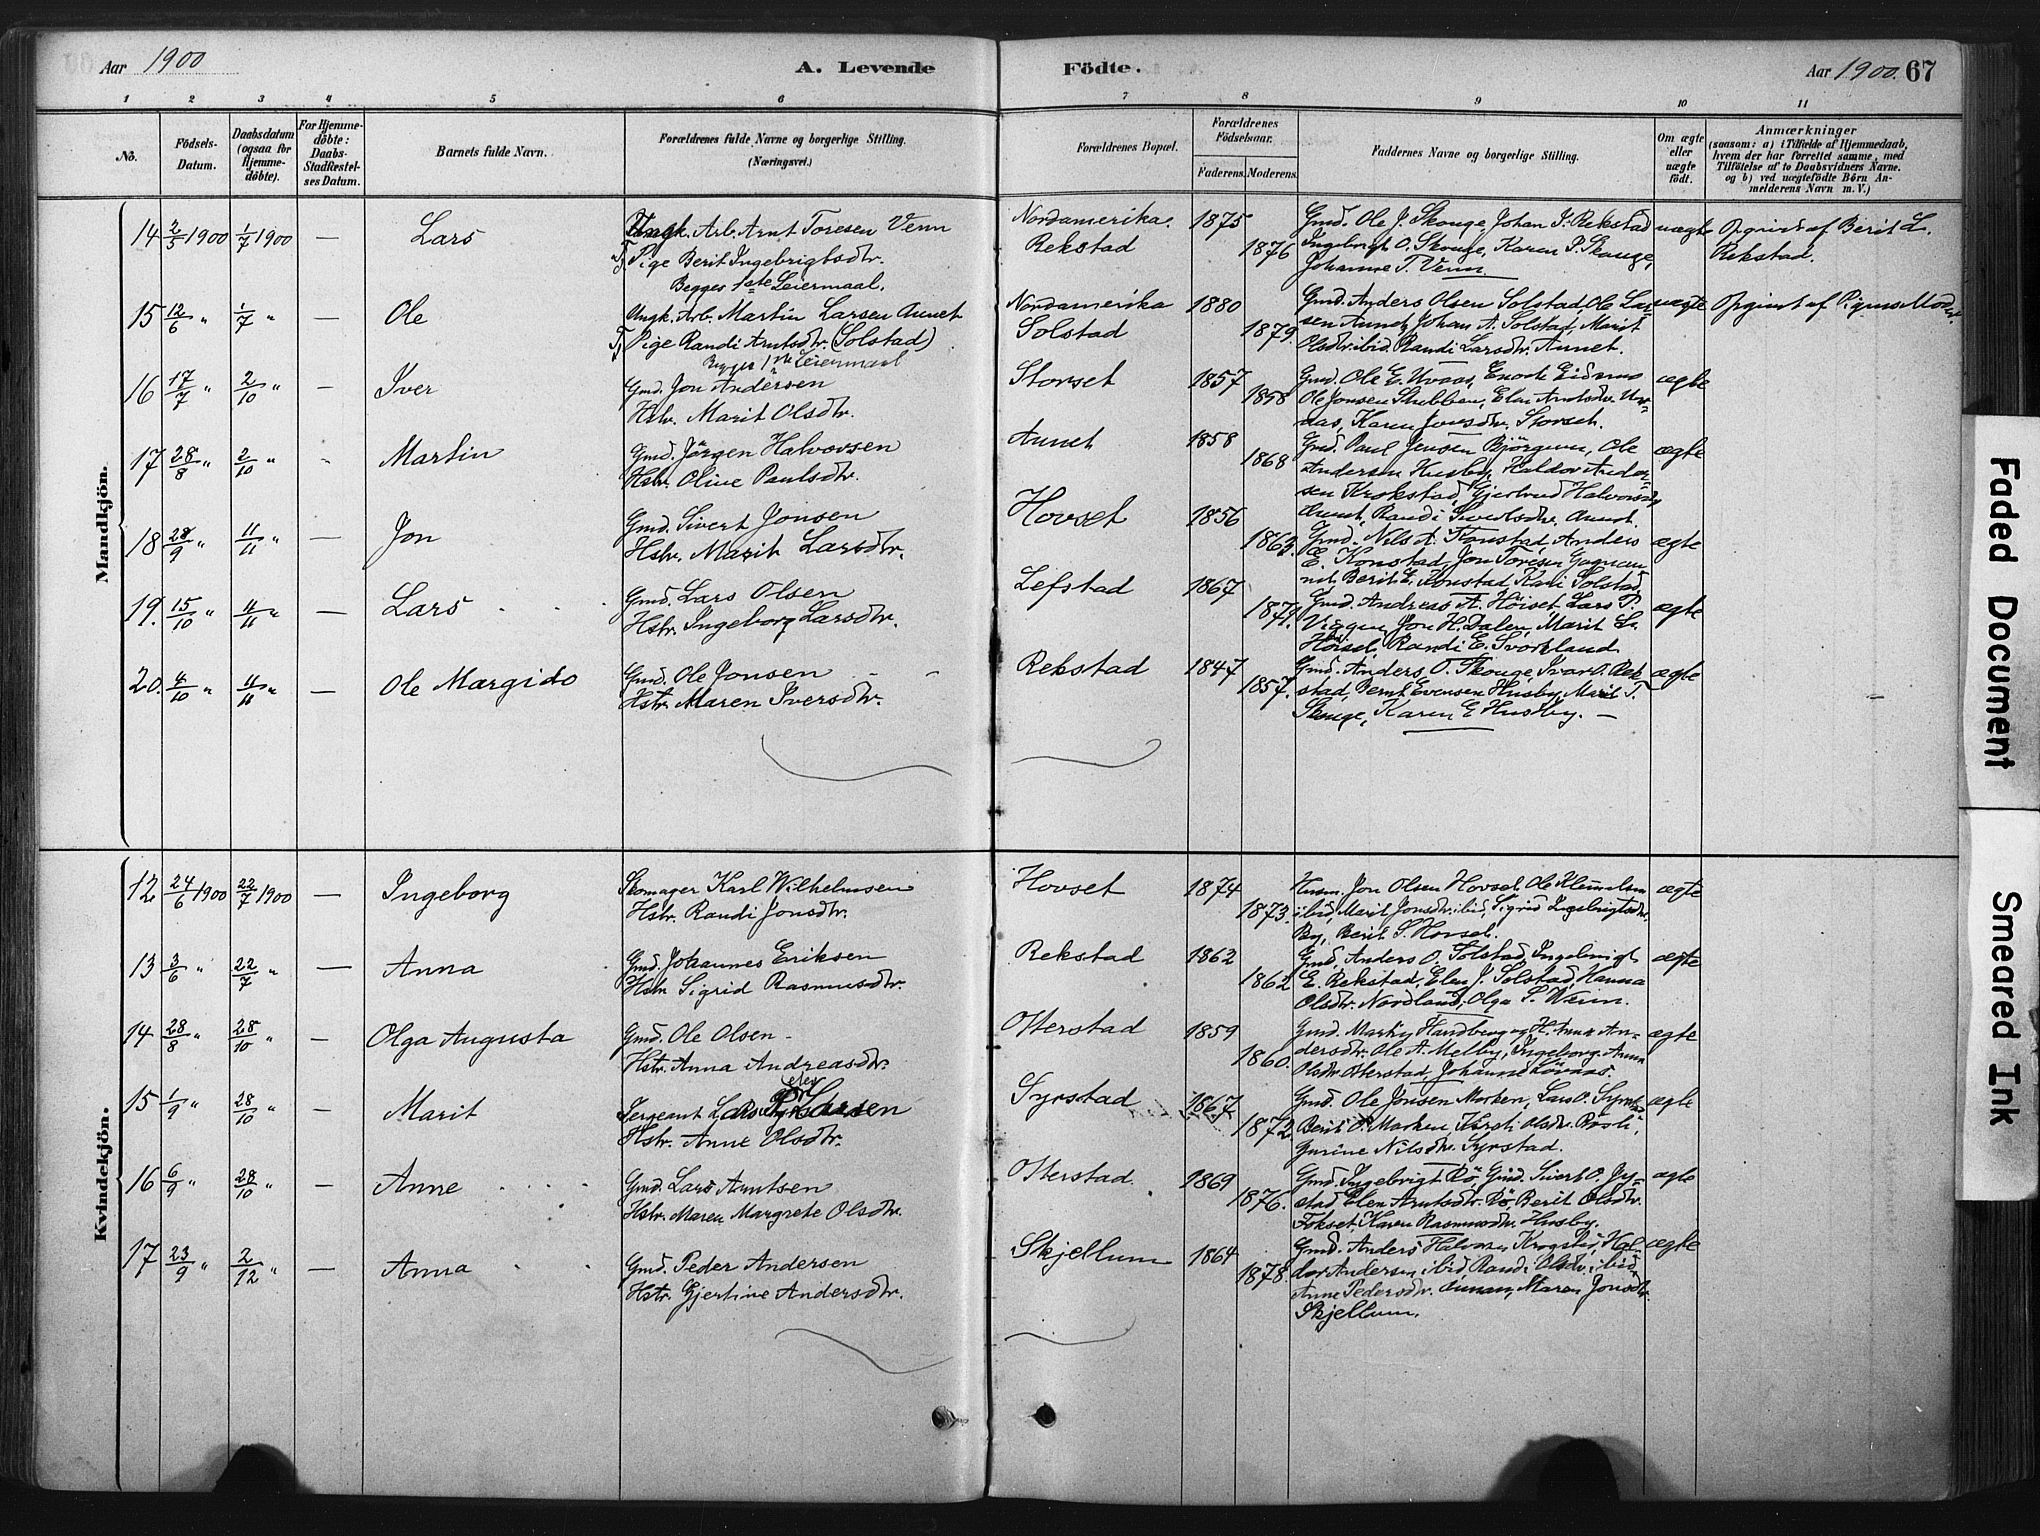 Aar 1900
A. Levende Fødte.
Aar 1900. 67
1 2 3 4 5 6 7 8 9 10 11
No.
Födsels-Datum.
Daabsdatum (ogsaa for Hjemme-döbte).
For Hjemme-döbte: Daabs-Stadfæstel-ses Datum.
Barnets fulde Navn.
Forældrenes fulde Navne og borgerlige Stilling. (Næringsvei.)
Forældrenes Bopæl.
Forældrenes Födselsaar.
Faderens. Moderens.
Faddernes Navne og borgerlige Stilling.
Om ægte eller uægte födt.
Anmærkninger
(saasom: a) i Tilfælde af Hjemmedaab, hvem der har forrettet samme, med Tilföielse af to Daabsvidners Navne. og b) ved uægtefödte Börn An-melderens Navn m. V.)
Mandkjön.
14 2/5 1900 1/7 1900 — Lars
Ungk. Arb. Arnt Toresen Venn
Tj. Pige Berit Ingebrigtsdtr.
Begges 1ste Leiermaal.
Nordamerika.
Rekstad
1875
1876
Gmd. Ole J. Skouge, Johan I. Rekstad
Ingebrigt O. Skouge, Karen P. Skouge,
Johanne T. Venn
uægte
Opgivet af Berit L.
Rekstad.
15 12/6 " 1/7 " — Ole
Ungk. Arb. Martin Larsen Aunet
Tj. Pige Randi Arntsdtr. (Solstad)
Begges 1ste Leiermaal
Nordamerika
Solstad
1880
1879.
Gmd. Anders Olsen Solstad, Ole Lar-
sen Aunet, Johan A. Solstad, Marit
Olsdtr. ibid, Randi Larsdtr. Aunet.
uægte
Opgivet af Pigens Moder.
16 17/7 " 2/10 " — Iver
Gmd. Jon Andersen
Hstr. Marit Olsdtr.
Storset
1857
1858
Gmd. Ole E. Uvaas, Enok Eidsmo
Ole Jonsen Stubban, Elen Arntsdtr. Uv-
aas, Karen Jonsdtr. Storset.
ægte
17 28/8 " 2/10 " - Martin
Gmd. Jörgen Halvorsen
Hstr. Oline Paulsdtr.
Aunet
1858
1868
Gmd. Paul Jensen Bjørgum, Ole
Andersen Husby, Haldor Ander-
sen Krokstad, Gjertrud Halvorsdtr
Aunet, Randi Sivertsdtr. Aunet.
ægte
18 28/9 " 11/11 " — Jon
Gmd. Sivert Jonsen
Hstr. Marit Larsdtr.
Hovset
1856
1863.
Gmd. Nils A. Konstad, Anders
E. Konstad, Jon Toresen
Berit E. Konstad, Kari Solstad
ægte
19. 15/10 " 11/11 " — Lars
Gmd. Lars Olsen
Hstr. Ingeborg Larsdtr.
Lefstad
1867
1871.
Gmd. Andreas A. Höiset, Lars P.
Viggen, Jon H. Dalen, Marit L.
Höiset, Randi E. Svorkland
ægte
20. 4/10 " 11/11 " — Ole Margido
Gmd. Ole Jonsen
Hstr. Maren Iversdtr.
Rekstad
1847
1857.
Gmd. Anders O. Skouge, Ivar O. Rek-
stad, Bernt Evensen Husby, Marit T.
Skouge, Karen E Husby. —
ægte
Kvindekjön.
12. 24/6 1900 22/7 1900 — Ingeborg
Skomager Karl Wilhelmsen
Hstr. Randi Jonsdtr.
Hovset
1874
1873.
Husm. Jon Olsen Hovset, Ole
ibid, Marit Jonsdtr. ibid, Sigrid Ingebrigtsdtr.
By, Berit S. Hovset.
ægte
13 3/6 " 22/7 " — Anna
Gmd. Johannes Eriksen
Hstr Sigrid Rasmusdtr.
Rekstad
1862
1862
Gmd. Anders O. Solstad, Ingebrigt
E. Rekstad, Elen J. Solstad, Hanna
Olsdtr. Nordland, Olga S. Wenn.
ægte
14 28/8 " 28/10 " — Olga Augusta
Gmd. Ole Olsen -
Hstr. Anna Andreasdtr.
Otterstad
1859
1860.
Gmd. Martin Handberg og H. Anna An-
dersdtr. Ole A. Melby, Ingeborg Anna
Olsdtr Otterstad, Johanne Løvaas.
ægte
15 1/9 " 28/10 " — Marit
Sergeant Lars Larsen
Hstr. Anne Olsdtr.
Syrstad
1867
1872.
Gmd. Ole Jonsen Marken, Lars O. Syrstad
Berit O. Marken, Kjersti Olsdtr.
Gurine Nilsdtr. Syrstad.
ægte
16 6/9 " 28/10 " — Anne
Gmd. Lars Arntsen
Hstr. Maren Margrete Olsdtr.
Otterstad.
1869
1876.
Gmd. Ingebrigt Rö, Gmd. Sivert O. Jy-
stad, Elen Arntsdtr. Rö, Berit Olsdtr.
Fokset, Karen Rasmusdtr. Husby.
ægte
17 23/9 " 2/12 " — Anna
Gmd. Peder Andersen
Hstr. Gjertine Andersdtr.
Skjellum
1864
1878.
Gmd. Anders Halvorsen Krogstad, Hal-
dor Andersen ibid, Randi Olsdtr. ibid,
Anne Pedersdtr. Maren Jonsdtr.
Skjellum.
ægte
Faded Document
Smeared Ink